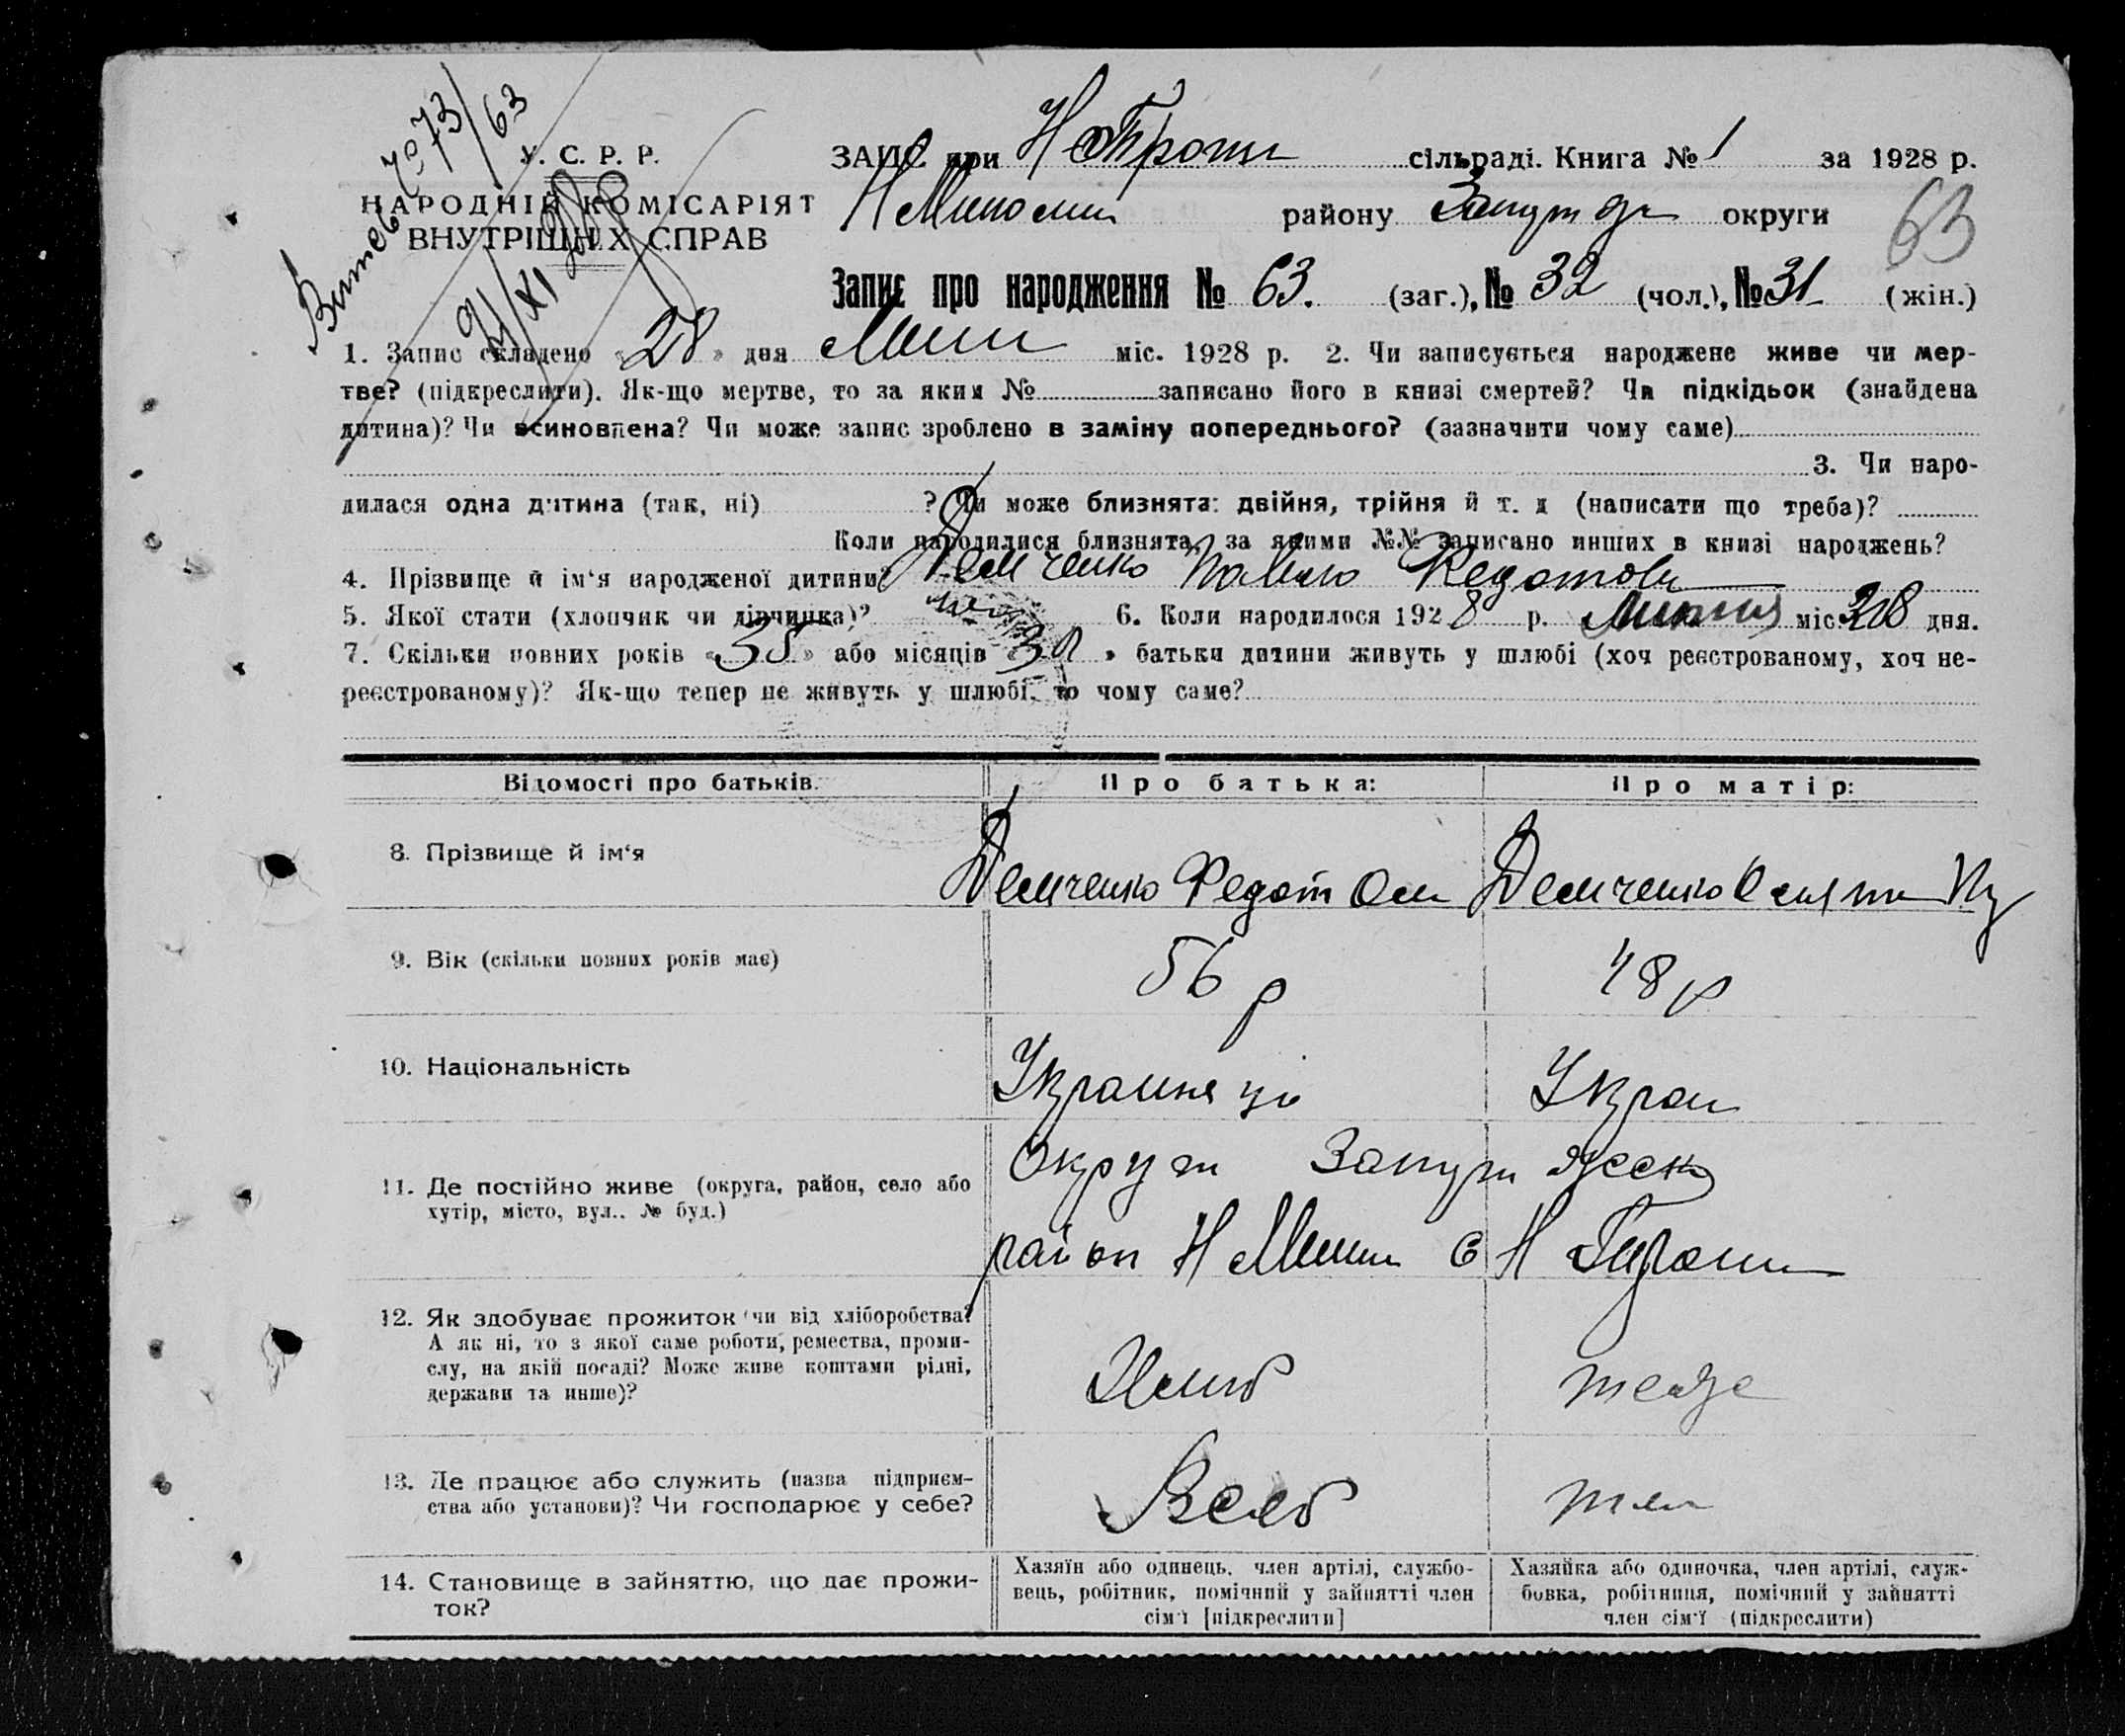 73/63
У. С. Р. Р.
НАРОДНІЙ КОМІСАРІЯТ
ВНУТРІШНІХ СПРАВ
ЗАГС при Н Трои сільраді. Книга № 1 за 1928 р.
району округи
63
Запис про народження № 63. (заг.), № 32 (чол.), № 31 (жін.)
1. Запис складено „28” дня міс. 1928 р. 2. Чи записується народжене живе чи мер-
тве? (підкреслити). Як-що мертве, то за яким № записано його в книзі смертей? Чи підкідьок (знайдена
дитина)? Чи всиновлена? Чи може запис зроблено в заміну попереднього? (зазначити чому саме)
3. Чи наро-
дилася одна дитина (так, ні) ? Чи може близнята: двійня, трійня й т. д (написати що треба)?
Коли народилися близнята, за якими №№ записано инших в книзі народжень?
4. Прізвище й ім‘я народженої дитини Демченко Павло Федотов
5. Якої стати (хлопчик чи дівчинка)? 6. Коли народилося 1928 р. міс. 28 дня.
7. Скільки повних років « 35 » або місяців « » батьки дитини живуть у шлюбі (хоч реєстрованому, хоч не-
реєстрованому)? Як-що тепер не живуть у шлюбі, то чому саме?
Відомості про батьків. Про батька: Про матір:
8. Прізвище й ім‘я Демченко Федот Ом Демченко
9. Вік (скільки повних років має) 56 р 48 р
10. Національність Украинець Украи
11. Де постійно живе (округа, район, село або
хутір, місто, вул.. № буд.)
Округи
район Н С Н
12. Як здобуває прожиток (чи від хліборобства?
А як ні, то з якої саме роботи, ремества, проми-
слу, на якій посаді? Може живе коштами рідні,
держави та инше)?
Хліб теж
13. Де працює або служить (назва підприєм-
ства або установи)? Чи господарює у себе?
14. Становище в зайняттю, що дає прожи-
ток?
Хазяїн або одинець, член артілі, службо-
вець, робітник, помічний у зайнятті член
сім‘ї [підкреслити]
Хазяйка або одиночка, член артілі, служ-
бовка, робітниця, помічний у зайнятті
член сім‘ї (підкреслити)